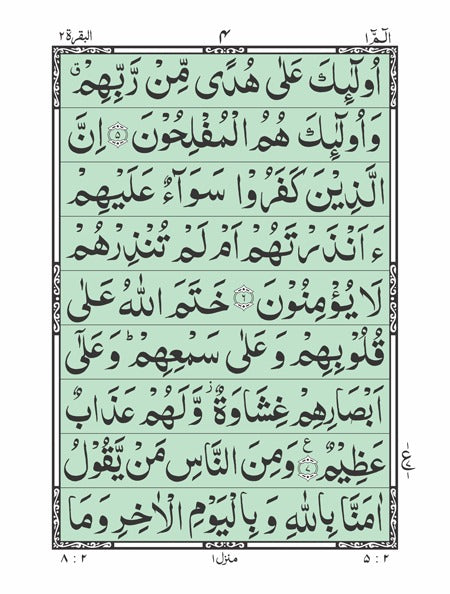 الٓمّٓ ١ ۴ البقرة ٢
اُولٰٓئِكَ عَلٰى هُدًى مِّنْ رَّبِّهِمْ ۛق
وَ اُولٰٓئِكَ هُمُ الْمُفْلِحُوْنَ ۝۵ اِنَّ
الَّذِيْنَ كَفَرُوْا سَوَآءٌ عَلَيْهِمْ
ءَاَنْذَرْتَهُمْ اَمْ لَمْ تُنْذِرْهُمْ
لَا يُؤْمِنُوْنَ ۝۶ خَتَمَ اللّٰهُ عَلٰى
قُلُوْبِهِمْ وَ عَلٰى سَمْعِهِمْ ؕ وَ عَلٰٓى
اَبْصَارِهِمْ غِشَاوَةٌ ز وَّ لَهُمْ عَذَابٌ
عَظِيْمٌ ۝۷ ع وَ مِنَ النَّاسِ مَنْ يَّقُوْلُ
اٰمَنَّا بِاللّٰهِ وَ بِالْيَوْمِ الْاٰخِرِ وَ مَا
ع
۵ : ٢ منزل ١ ٨ : ٢